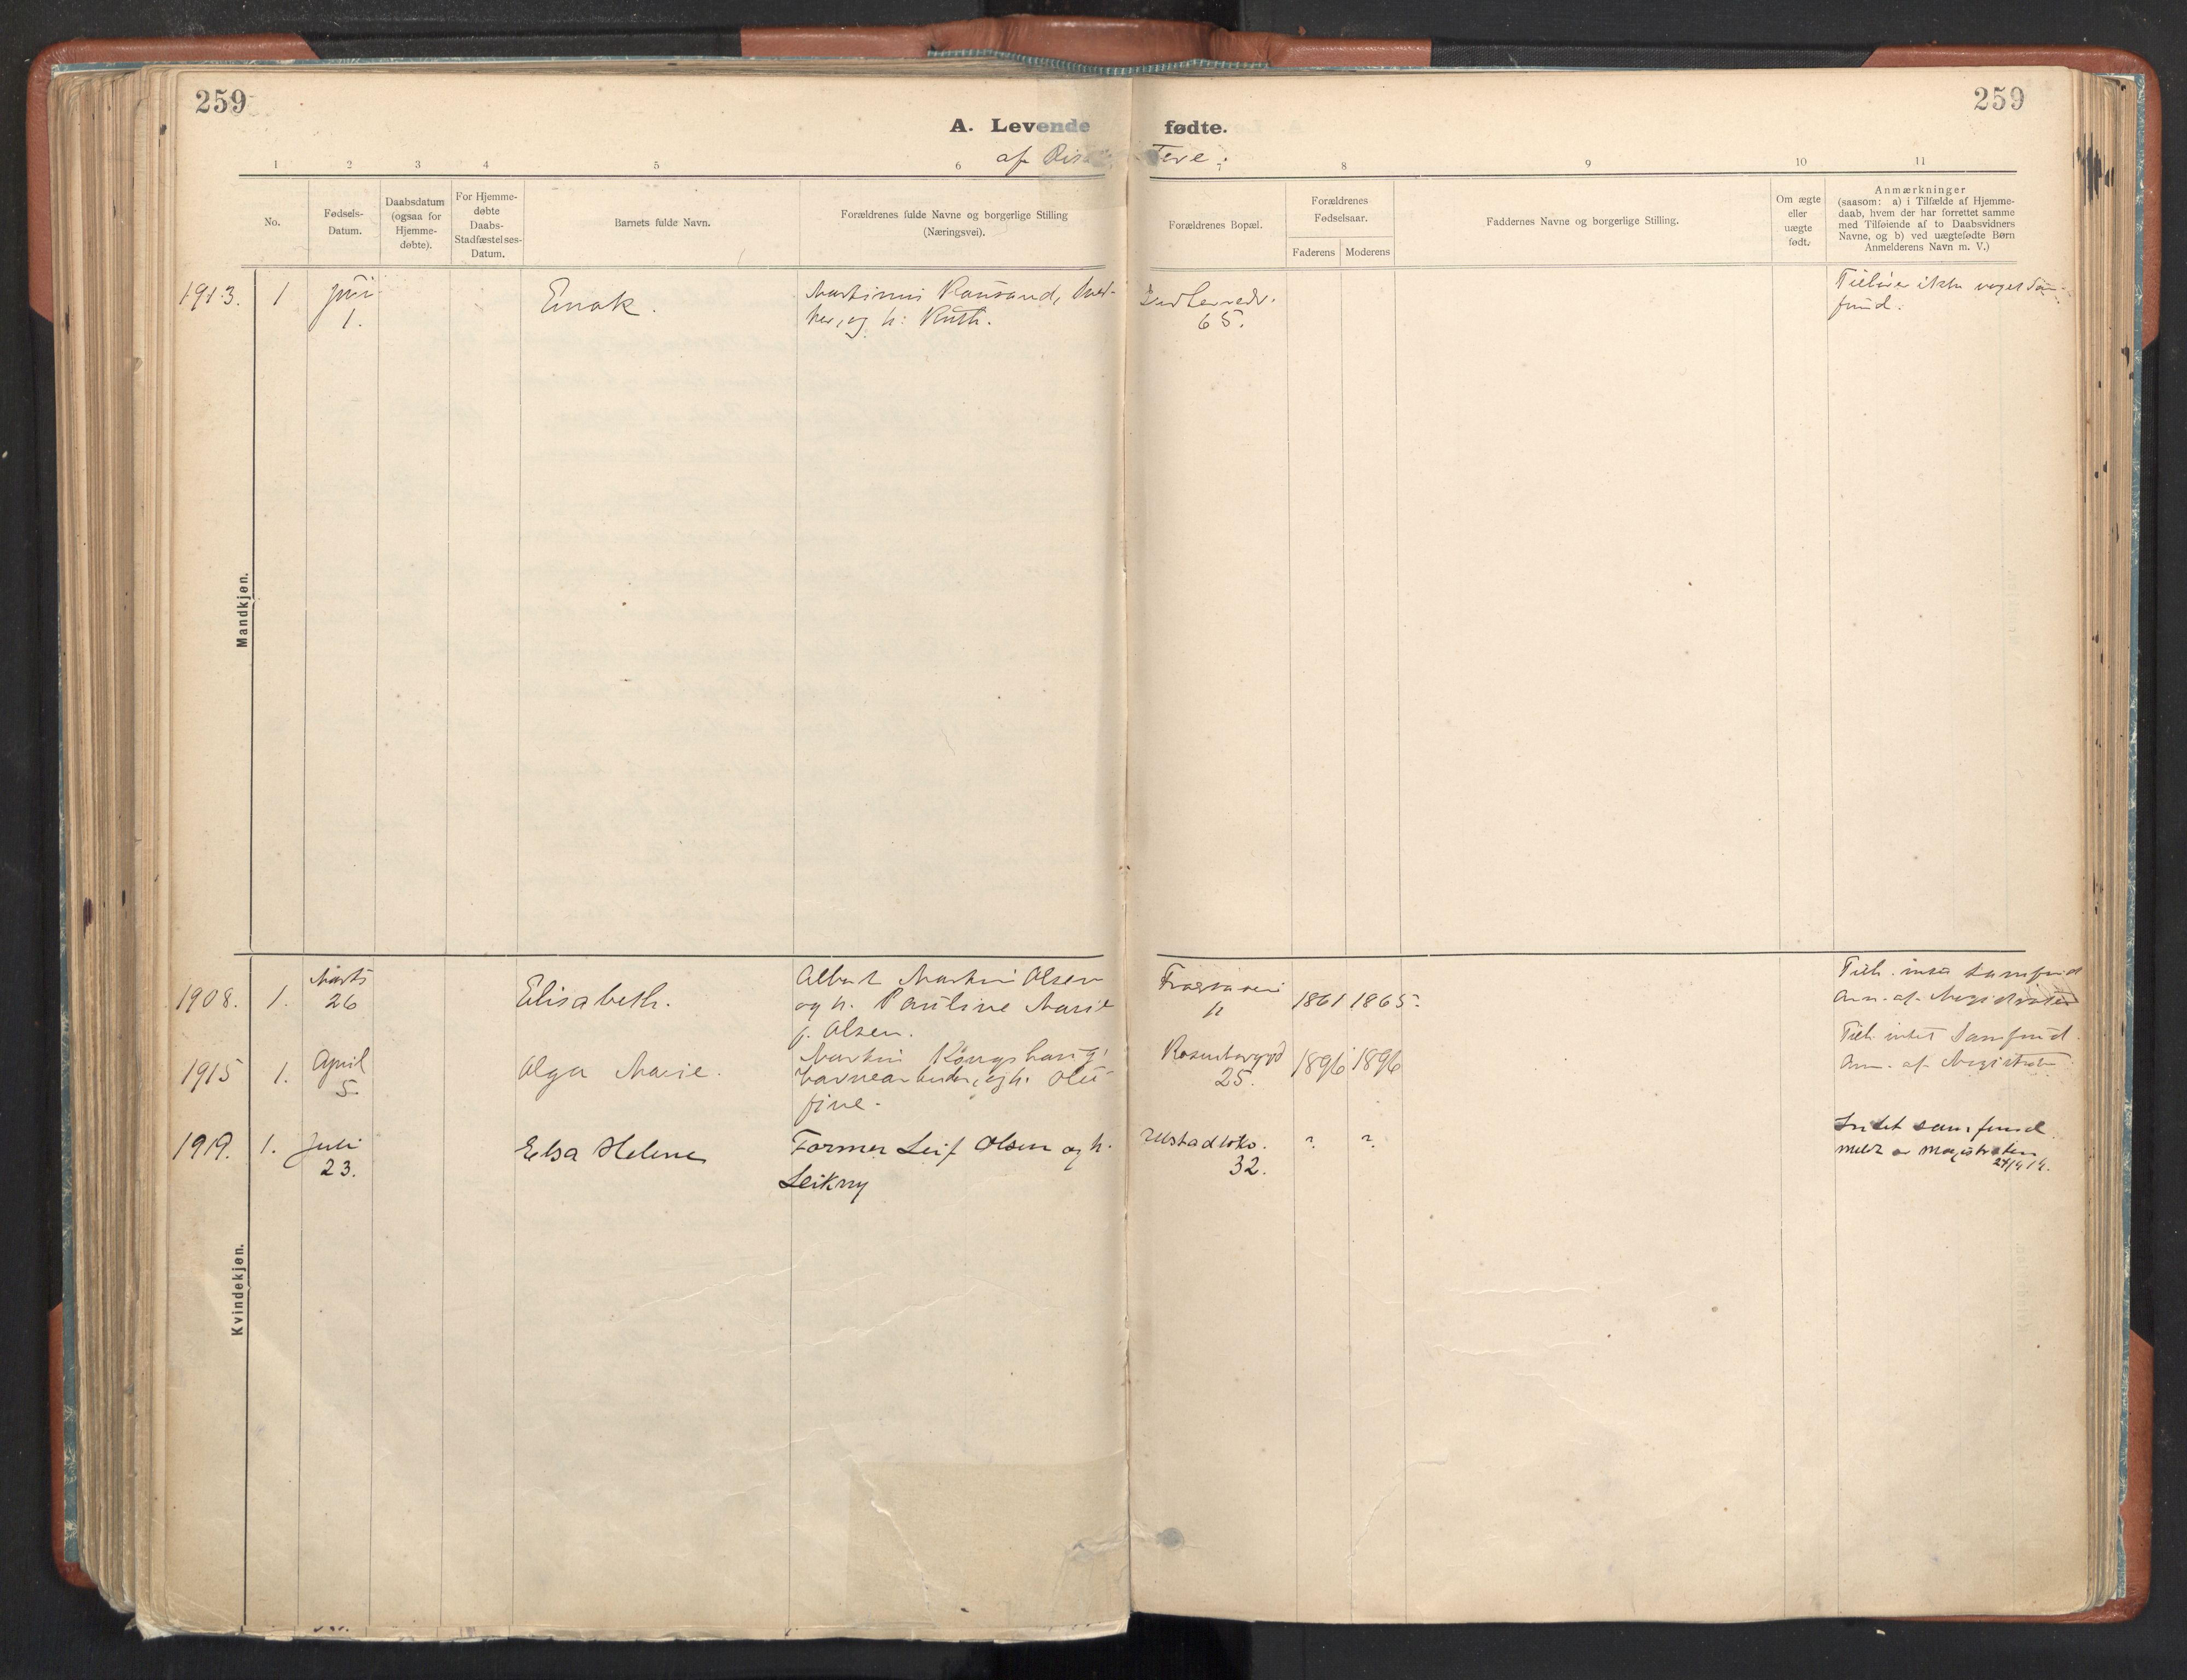 259
259
A. Levende fødte.
af
1
2
3
4
5
6
7
8
9
10
11
No.
Fødsels-
Datum.
Daabsdatum
(ogsaa for
Hjemme-
døbte).
For Hjemme-
døbte
Daabs-
Stadfæstelses-
Datum.
Barnets fulde Navn.
Forældrenes fulde Navne og borgerlige Stilling
(Næringsvei).
Forældrenes Bopæl.
Forældrenes
Fødselsaar.
Faderens
Moderens
Faddernes Navne og borgerlige Stilling.
Om ægte
eller
uægte
født.
Anmærkninger
(saasom: a) i Tilfælde af Hjemme-
daab, hvem der har forrettet samme
med Tilføiende af to Daabsvidners
Navne, og b) ved uægtefødte Børn
Anmelderens Navn m. V.)
Mandkjøn.
1913. 1
1.
Enok.
Martinus Rausand,
og h: Ruth.
65.
Kvindekjøn.
1908. 1. Marts
26
Elisabeth.
Albert Martin Olsen
og h. Pauline Marie
f. Olsen.
1861 1865.
Tilh. intet Samfund
Anm. af Magistraten
1915 1. April
5.
Olga Marie.
Martin Kongshaug,
havnearbeider, og h. Olu-
fine.
25.
1896 1896
Tilh. intet Samfund.
Anm. af Magistraten
1919. 1. Juli
23.
Elsa Helene
Former Leif Olsen og h.
Leikny
32.
? ?
Intet samfund.
meldt av magistraten